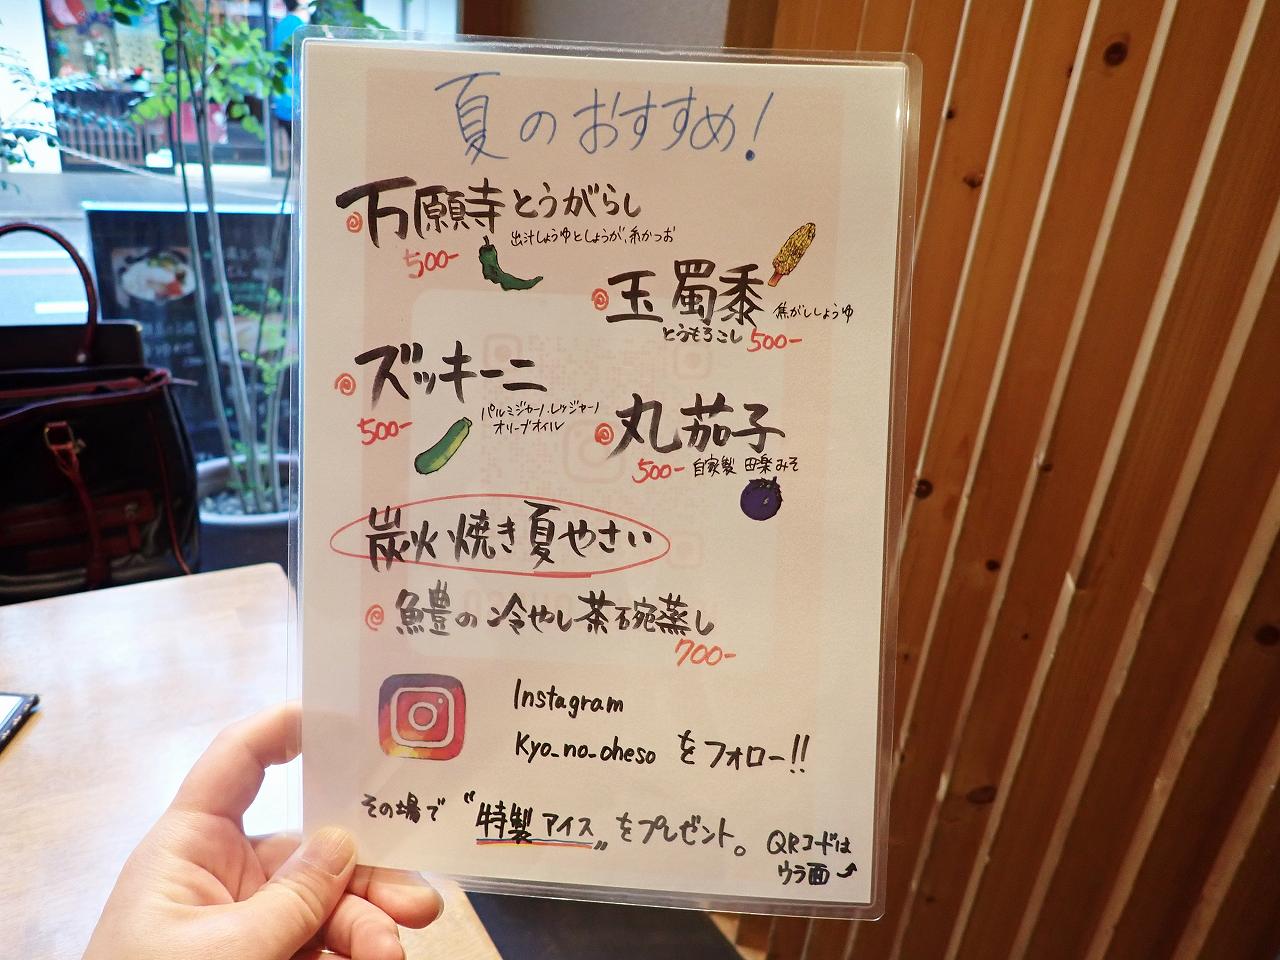 夏のおすすめ!
万願寺とうがらし
出汁しょうゆとしょうが、糸かつお
500-
玉蜀黍
とうもろこし
焦がししょうゆ
500-
ズッキーニ
パルミジャーノ・レッジャーノ
オリーブオイル
500-
丸茄子
500-
自家製 田楽みそ
炭火焼き夏やさい
鱧の冷やし茶碗蒸し
700-
Instagram
Kyo_no_oheso をフォロー!!
その場で〝特製アイス〟をプレゼント。
QRコードは
ウラ面